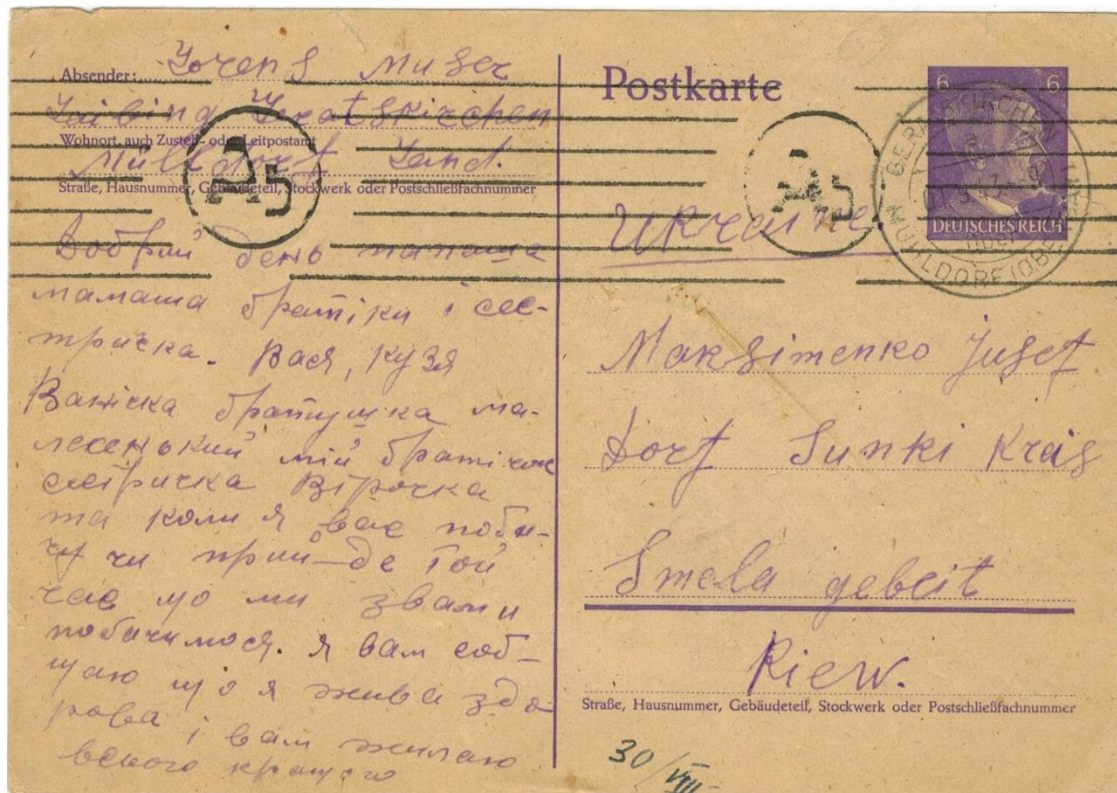 Absender: Lorens Muser
Laibing Geratskirchen
Wohnort, auch Zustell- oder Leitpostamt
Mülldorf Land.
Straße, Hausnummer, Gebäudeteil, Stockwerk oder Postschließfachnummer
A5
Добрий день папаша
мамаша братіки і сес-
тричка. Вася, Кузя
Ванічка братушка ма-
лесенький мій братічок
сестричка Вірочка
та коли я вас поба-
чу чи прий-де той
час що ми звами
побачимося. я вам соб-
щаю що я жива здо
рова і вам жилаю
всього кращого
Postkarte
A5
6 6
DEUTSCHES REICH
GERATSKIRCHEN
MÜHLDORF (OBERBAY)
Ukraine.
Maksimenko Jusef
Dorf Sunki Kräs
Smela gebeit
Kiew.
Straße, Hausnummer, Gebäudeteil, Stockwerk oder Postschließfachnummer
30/VIII